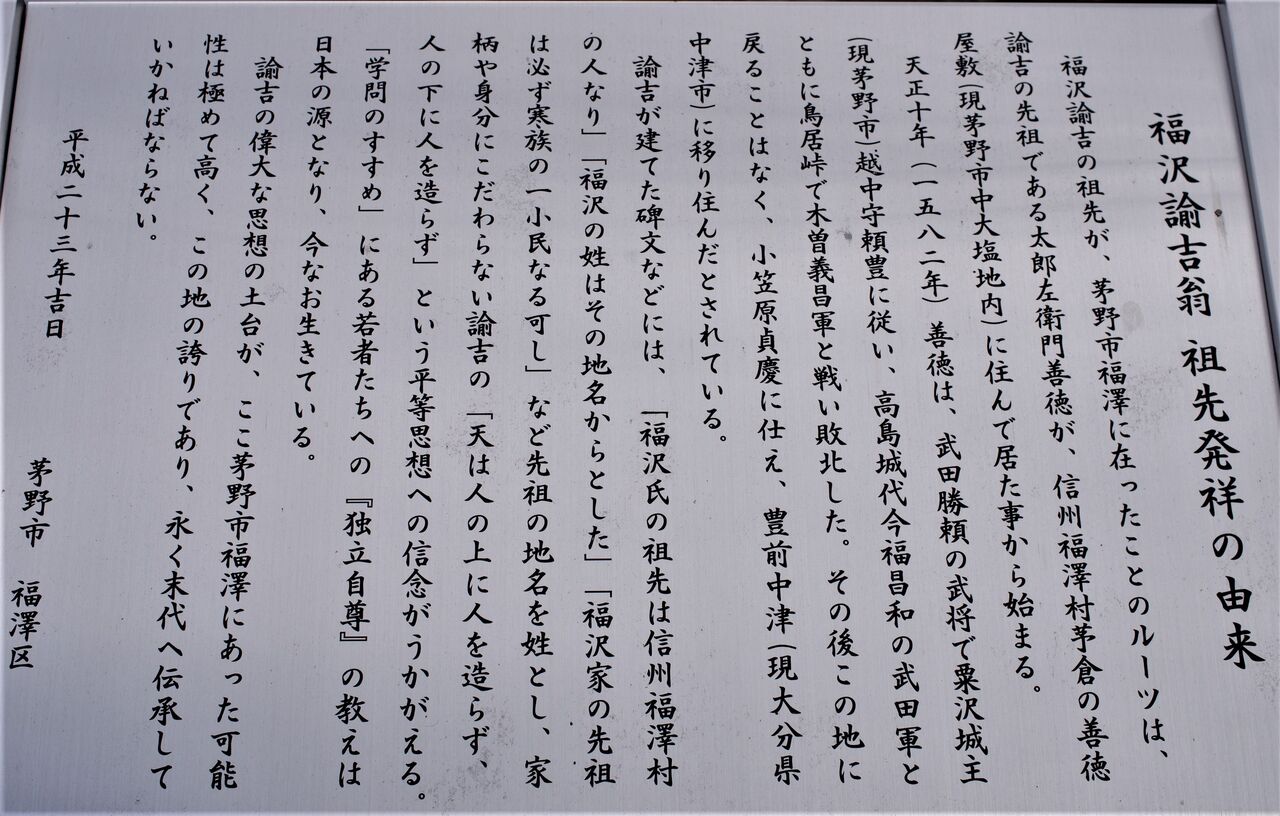 福沢諭吉翁 祖先発祥の由来
福沢諭吉の祖先が、茅野市福澤に在ったことのルーツは、
諭吉の先祖である太郎左衛門善徳が、信州福澤村茅倉の善徳
屋敷(現茅野市中大塩地内)に住んで居た事から始まる。
天正十年(一五八二年)善徳は、武田勝頼の武将で粟沢城主
(現茅野市)越中守頼豊に従い、高島城代今福昌和の武田軍と
ともに鳥居峠で木曽義昌軍と戦い敗北した。その後この地に
戻ることはなく、小笠原貞慶に仕え、豊前中津(現大分県
中津市)に移り住んだとされている。
諭吉が建てた碑文などには、「福沢氏の祖先は信州福澤村
の人なり」「福沢の姓はその地名からとした」「福沢家の先祖
は必ず寒族の一小民なる可し」など先祖の地名を姓とし、家
柄や身分にこだわらない諭吉の「天は人の上に人を造らず、
人の下に人を造らず」という平等思想への信念がうかがえる。
「学問のすすめ」にある若者たちへの『独立自尊』の教えは
日本の源となり、今なお生きている。
諭吉の偉大な思想の土台が、ここ茅野市福澤にあった可能
性は極めて高く、この地の誇りであり、永く末代へ伝承して
いかねばならない。
平成二十三年吉日
茅野市 福澤区